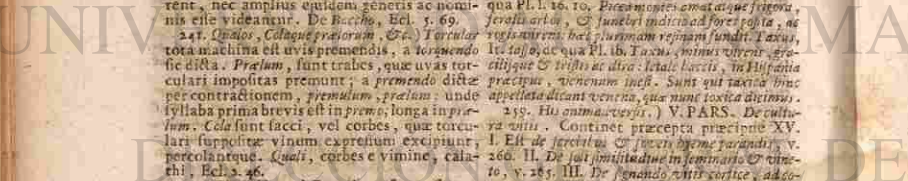 rent, nec amplius ejusdem generis ac remi-
nis esse videantur. De Baccho, Ecl. 5. 69.
241. Qualos, Colaque prælorum, &c.) Torcular
tota machina est uvis premendis, a torquendo
sic dicta. Prælum, sunt trabes, quæ uvas tor-
culari impositas premunt; a premendo dictæ
per contractionem, premulum, prælum: unde
syllaba prima brevis est in premo; longa in præ-
lum. Cola sunt sacci, vel corbes, quæ torcu-
lari suppositæ vinum expressum excipiunt,
percolantque. Quali, corbes e vimine, cala-
thi, Ecl. 2. 46.
qua Pl. l. 16. 10. Picea montes amat atque frigora,
feralis arbor, & funebri indicio ad fores posita, ac
rogis virens. hæc plurimam resinam fundit. Taxus,
It. tasso, de qua Pl. ib. Taxus minus virens, gra-
cilisque & tristis ac dira: letale baccis, in Hispania
præcipue, venenum inest. Sunt qui taxica hinc
appellata dicant venena, quæ nunc toxica dicimus.
259. His animadversis.) V. PARS. De cultu-
ra vitis. Continet præcepta præcipue XV.
I. Est de scrobibus & hyeme parandis, v.
260. II. De soli similitudine in seminario & vine-
to, v. 265. III. De signando vitis cortice, ad co-
UNIV
MA
DE
DICION
DE